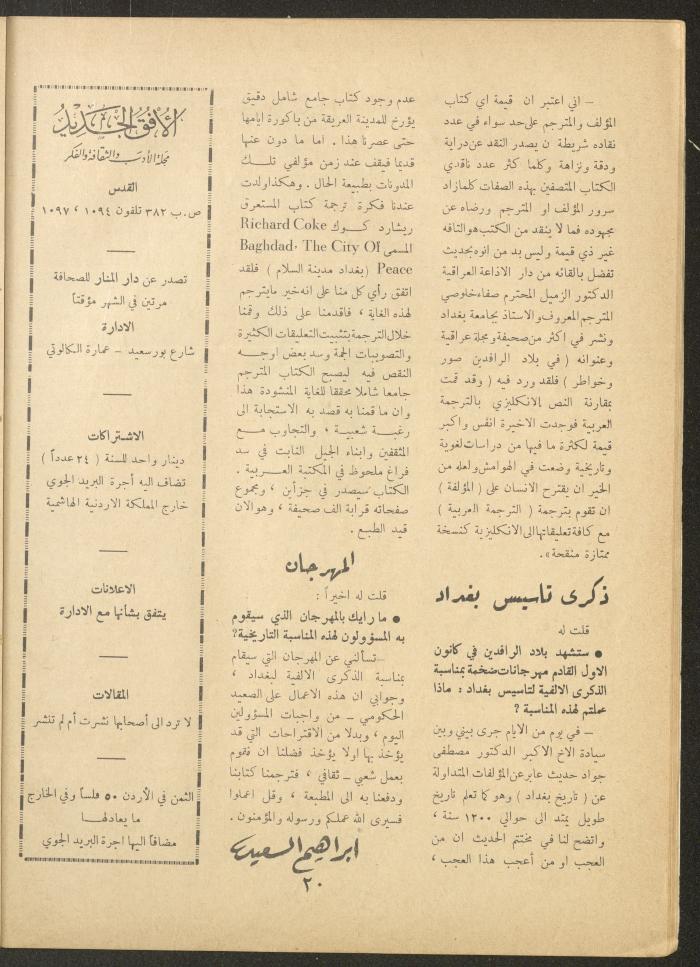 — اني اعتبر ان قيمة اي كتاب
المؤلف والمترجم على حد سواء في عدد
نقاده شريطة ن يصدر النقد عن دراية
ودقة ونزاهة وكلما كثر عدد ناقدي
الكتاب المتصفين بهذه الصفات كلما زاد
سرور المؤلف او المترجم ورضاه عن
مجهوده فما لا ينقد من الكتب هو التافه
غير ذي قيمة وليس بد من انوه بحديث
تفضل بالقائه من دار الاذاعة العراقية
الدكتور الزميل المحترم صفاء خلوصي
المترجم المعروف والاستاذ بجامعة بغداد
ونشر في اكثر من صحيفة ومجلة عراقية
وعنوانه ( في بلاد الرافدين صور
وخواطر ) فلقد ورد فيه ( وقد قمت
بمقارنة النص الانكليزي بالترجمة
العربية فوجدت الاخيرة انفس واكبر
قيمة لكثرة ما فيها من دراسات لغوية
وتاريخية وضعت في الهوامش ولعله من
الخير ان يقترح الانسان على ( المؤلفة )
ان تقوم بترجمة ( الترجمة العربية )
مع كافة تعليقاتها الى الانكليزية كنسخة
ممتازة منقحة» .
ذكرى تاسيس بغداد
قلت له
● ستشهد بلاد الرافدين في كانون
الاول القادم مهرجانات ضخمة بمناسبة
الذكرى الالفية لتاسيس بغداد : ماذا
عملتم لهذه المناسبة ؟
— في يوم من الايام جرى بيني وبين
سيادة الاخ الاكبر الدكتور مصطفى
جواد حديث عابر عن المؤلفات المتداولة
عن ( تاريخ بغداد ) وهو كما تعلم تاريخ
طويل يمتد الى حوالي ١٢٠٠ سنة ،
واتضح لنا في مختتم الحديث ان من
العجب او من أعجب هذا العجب ،
عدم وجود كتاب جامع شامل دقيق
يؤرخ للمدينة العريقة من باكورة ايامها
حتى عصرنا هذا . اما ما دون عنها
قديما فيقف عند زمن مؤلفي تلك
المدونات بطبيعة الحال . وهكذا ولدت
عندنا فكرة ترجمة كتاب المستعرق
ريشارد كوك Richard Coke
المسمى Baghdad, The City Of
Peace ( بغداد مدينة السلام ) فلقد
اتفق رأي كل منا على انه خير ما يترجم
لهذه الغاية ، فاقدمنا على ذلك وقمنا
خلال الترجمة بتثبيت التعليقات الكثيرة
والتصويبات الجمة وسد بعض اوجه
النقص فيه ليصبح الكتاب المترجم
جامعا شاملا محققا للغاية المنشودة هذا
وان ما قمنا به قصد به الاستجابة الى
رغبة شعبية ، والتجاوب مع
المثقفين وابناء الجيل النابت في سد
فراغ ملحوظ في المكتبة العربية .
الكتاب سيصدر في جزأين ، ومجموع
صفحاته قرابة الف صحيفة ، وهو الان
قيد الطبع .
المهرجان
قلت له اخيراً :
● ما رايك بالمهرجان الذي سيقوم
به المسؤولون لهذه المناسبة التاريخية؟
— تسألني عن المهرجان التي سيقام
بمناسبة الذكرى الالفية لبغداد ،
وجوابي ان هذه الاعمال على الصعيد
الحكومي — من واجبات المسؤولين
اليوم ، وبدلا من الاقتراحات التي قد
يؤخذ بها اولا يؤخذ فضلنا ان نقوم
بعمل شعبي — ثقافي ، فترجمنا كتابنا
ودفعنا به الى المطبعة ، وقل اعملوا
فسيرى الله عملكم ورسوله والمؤمنون .
ابراهيم السعيد
٢٠
الأفق الجديد
مجلة الأدب والثقافة والفكر
القدس
ص.ب ٣٨٢ تلفون ١٠٩٤ ، ١٠٩٧
تصدر عن دار المنار للصحافة
مرتين في الشهر مؤقتاً
الادارة
شارع بور سعيد — عمارة الكالوتي
الاشتراكات
دينار واحد للسنة ( ٢٤ عدداً )
تضاف اليه أجرة البريد الجوي
خارج المملكة الاردنية الهاشمية
الاعلانات
يتفق بشأنها مع الادارة
المقالات
لا ترد الى أصحابها نشرت أم لم تنشر
الثمن في الأردن ٥٠ فلساً وفي الخارج
ما يعادلها
مضافاً اليها اجرة البريد الجوي